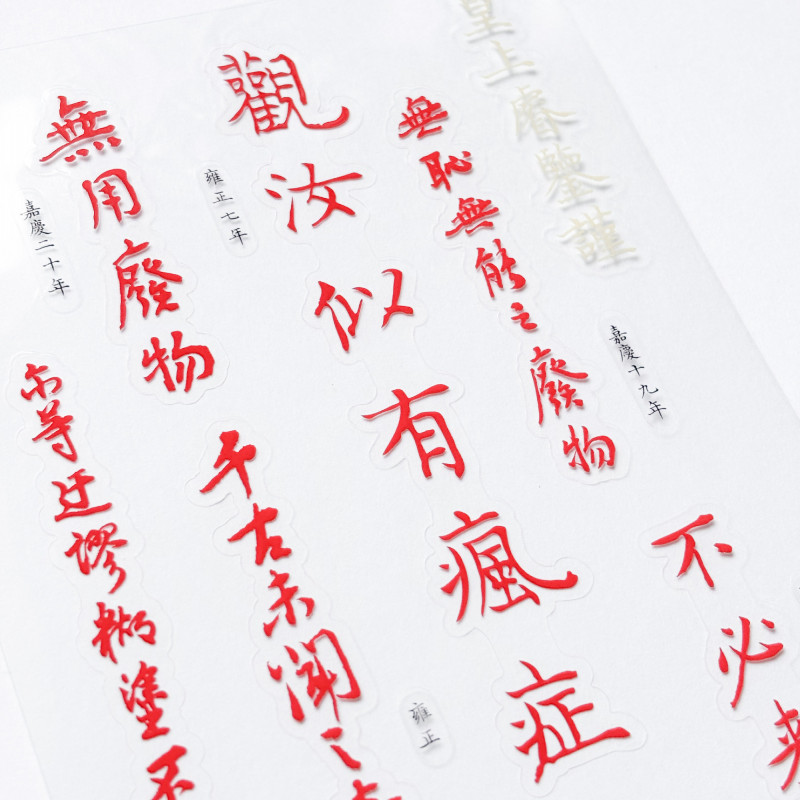 皇上睿鑒謹
嘉慶十九年
不必
無恥無能之廢物
觀汝似有瘋症
雍正七年
雍正
無用廢物
千古未聞之
嘉慶二十年
尓等迂謬糊塗不